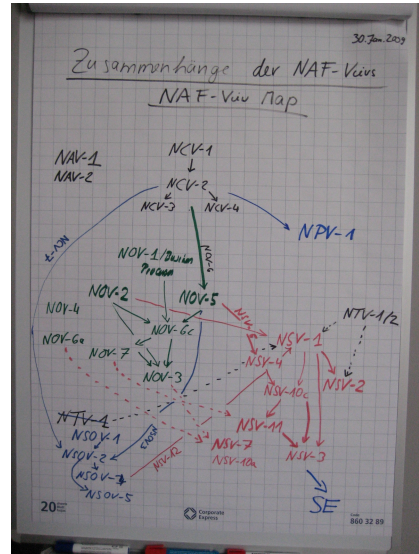 30.Jan.2009
Zusammenhänge der NAF-Views
NAF-View Map
NAV-1
NAV-2
NCV-1
NCV-2
NCV-3 NCV-4
NCV-7
NPV-1
NOV-6
NOV-1/
NOV-2 NOV-5
NOV-4
NOV-6a
NOV-6c
NOV-7
NOV-3
NTV-1/2
NSV-1
NSV-4
NSV-2
NSV-10c
NSV-11
NSV-7
NSV-10a
NSV-3
NSV-12
NTV-1
NSOV-1
NSOV-2
NSOV-3
NSOV-5
SE
20
Corporate
Express
Code
860 32 89